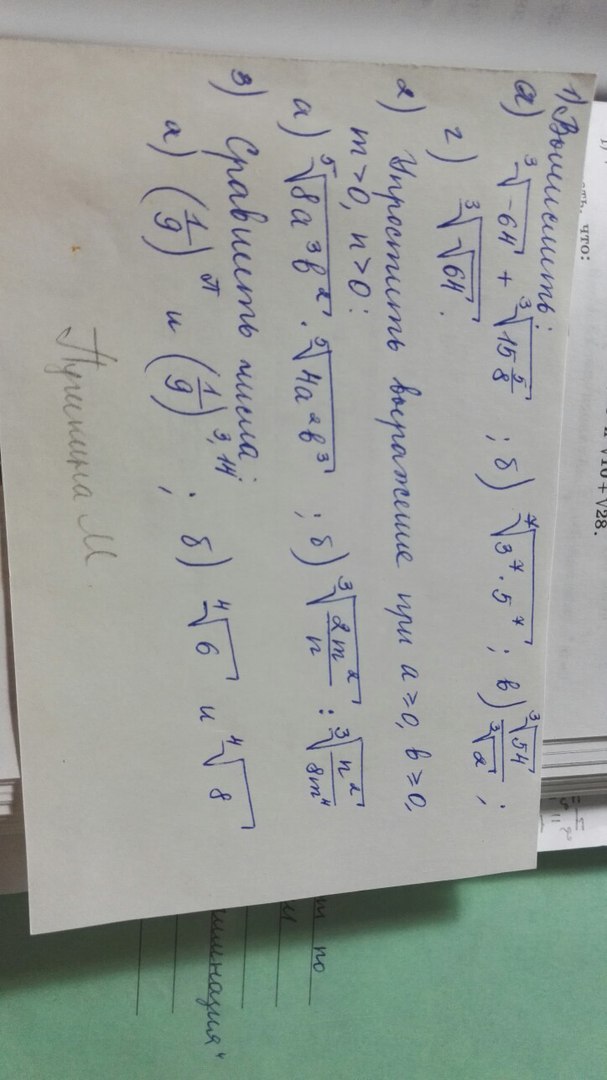 1) Вычислить:
а) ∛(-64) + ∛(15 5/8) ; б) ⁷√(3⁷·5⁷) ; в) ∛54/∛2 ;
г) ∛√64.
2) Упростить выражение при a≥0, b≥0,
m>0, n>0:
а) ⁵√(8a³b²) · ⁵√(4a²b³) ; б) ∛(2m²/n) : ∛(n²/8m⁴)
3) Сравнить числа:
а) (1/9)^π и (1/9)^3,14 ; б) ⁴√6 и ⁴√8
что:
√28.
по